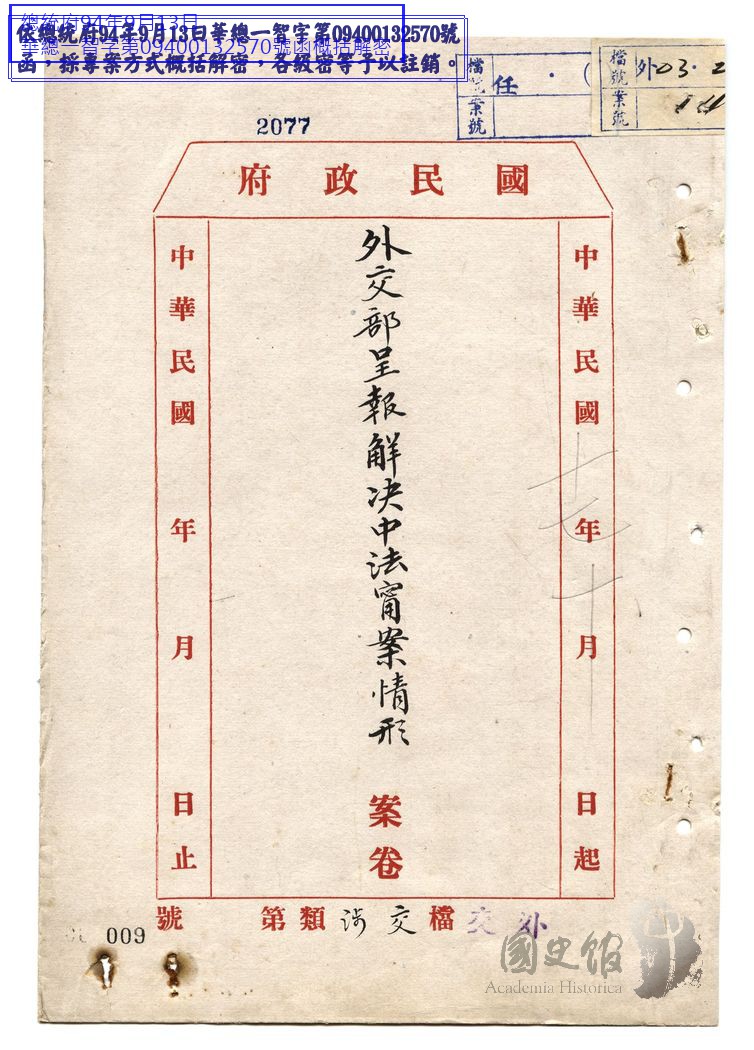 總統府94年9月13日
華總一智字第09400132570號函概括解密
依總統府94年9月13日華總一智字第09400132570號
函，採專案方式概括解密，各級密等予以註銷。
檔號
任
案號
檔號
外03.2
案號
2077
國民政府
中華民國 年 月 日起
外交部呈報解決中法甯案情形
案卷
中華民國 年 月 日止
外交檔交涉類第 號
009
國史館
Academia Historica